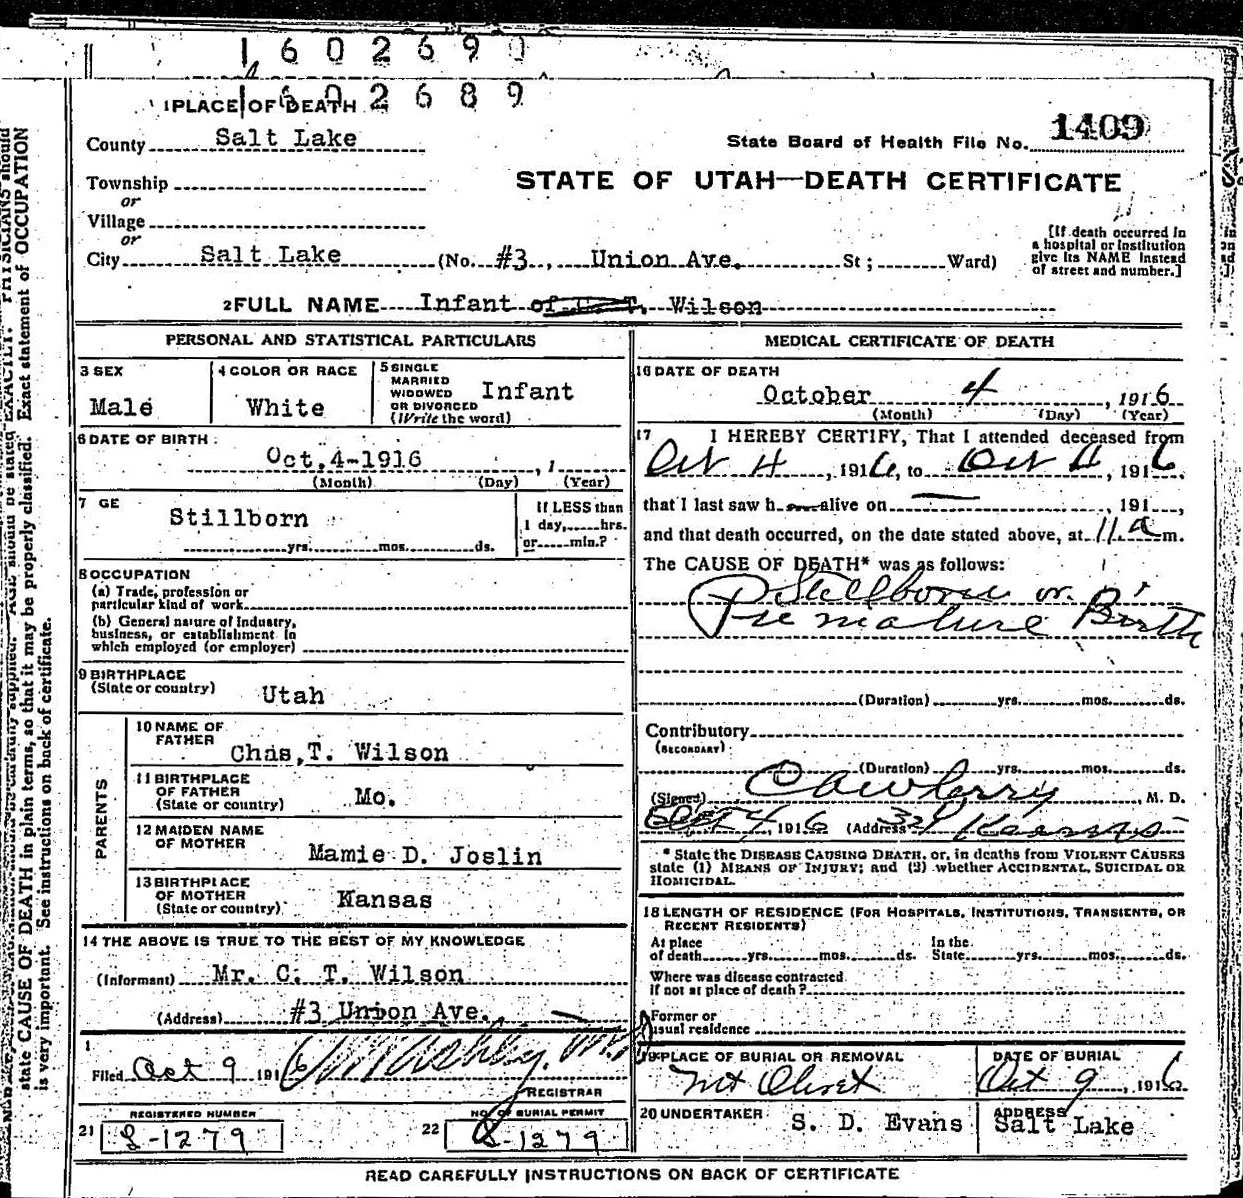 1602690
1602689
1 PLACE OF DEATH
County Salt Lake
State Board of Health File No. 1409
Township
or
Village
or
STATE OF UTAH—DEATH CERTIFICATE
City Salt Lake (No. #3, Union Ave. St; Ward)
[If death occurred in
a hospital or institution
give its NAME instead
of street and number.]
2 FULL NAME Infant of C. T. Wilson
PERSONAL AND STATISTICAL PARTICULARS
3 SEX
Male
4 COLOR OR RACE
White
5 SINGLE
MARRIED
WIDOWED
OR DIVORCED
(Write the word)
Infant
6 DATE OF BIRTH
Oct. 4-1916, 1
(Month) (Day) (Year)
7 GE
Stillborn
yrs. mos. ds.
If LESS than
1 day, hrs.
or min.?
8 OCCUPATION
(a) Trade, profession or
particular kind of work
(b) General nature of industry,
business, or establishment in
which employed (or employer)
9 BIRTHPLACE
(State or country) Utah
PARENTS
10 NAME OF
FATHER
Chas, T. Wilson
11 BIRTHPLACE
OF FATHER
(State or country) Mo.
12 MAIDEN NAME
OF MOTHER
Mamie D. Joslin
13 BIRTHPLACE
OF MOTHER
(State or country) Kansas
14 THE ABOVE IS TRUE TO THE BEST OF MY KNOWLEDGE
(Informant) Mr. C. T. Wilson
(Address) #3 Union Ave.
Filed Oct 9 1916 Ashby, M.D.
REGISTRAR
REGISTERED NUMBER
21 S-1279
NO. OF BURIAL PERMIT
22 S-1279
MEDICAL CERTIFICATE OF DEATH
16 DATE OF DEATH
October 4, 1916
(Month) (Day) (Year)
17 I HEREBY CERTIFY, That I attended deceased from
Oct 4, 1916, to Oct 4, 1916.
that I last saw h alive on , 191 ,
and that death occurred, on the date stated above, at 11 a m.
The CAUSE OF DEATH* was as follows:
Stillborn or
Premature Birth
(Duration) yrs. mos. ds.
Contributory
(SECONDARY)
(Duration) yrs. mos. ds.
(Signed) , M. D.
4, 1916 (Address) Kearns
* State the DISEASE CAUSING DEATH, or, in deaths from VIOLENT CAUSES
state (1) MEANS OF INJURY; and (2) whether ACCIDENTAL, SUICIDAL OR
HOMICIDAL.
18 LENGTH OF RESIDENCE (FOR HOSPITALS, INSTITUTIONS, TRANSIENTS, OR
RECENT RESIDENTS)
At place
of death yrs. mos. ds.
In the
State yrs. mos. ds.
Where was disease contracted
if not at place of death?
Former or
usual residence
19 PLACE OF BURIAL OR REMOVAL
Mt Olivet
DATE OF BURIAL
Oct 9, 1916
20 UNDERTAKER S. D. Evans
ADDRESS
Salt Lake
READ CAREFULLY INSTRUCTIONS ON BACK OF CERTIFICATE
EXACTLY. PHYSICIANS should
state CAUSE OF DEATH in plain terms, so that it may be properly classified. Exact statement of OCCUPATION
is very important. See instructions on back of certificate.